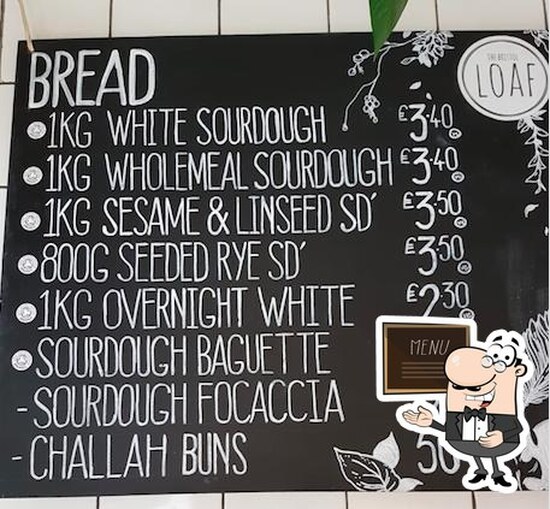 THE BRISTOL
LOAF
BREAD
1KG WHITE SOURDOUGH £3.40
1KG WHOLEMEAL SOURDOUGH £3.40
1KG SESAME & LINSEED SD' £3.50
800G SEEDED RYE SD' £3.50
1KG OVERNIGHT WHITE £2.30
SOURDOUGH BAGUETTE
- SOURDOUGH FOCACCIA
- CHALLAH BUNS 50
MENU